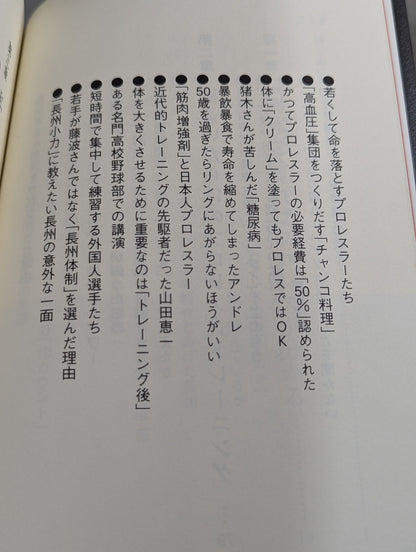 ●若くして命を落とすプロレスラーたち
●「高血圧」集団をつくりだす「チャンコ料理」
●かつてプロレスラーの必要経費は「50％」認められた
●体に「クリーム」を塗ってもプロレスではOK
●猪木さんが苦しんだ「糖尿病」
●暴飲暴食で寿命を縮めてしまったアンドレ
●50歳を過ぎたらリングにあがらないほうがいい
●「筋肉増強剤」と日本人プロレスラー
●近代的トレーニングの先駆者だった山田恵一
●体を大きくさせるために重要なのは「トレーニング後」
●ある名門高校野球部での講演
●短時間で集中して練習する外国人選手たち
●若手が藤波さんではなく「長州体制」を選んだ理由
●「長州小力」に教えたい長州の意外な一面